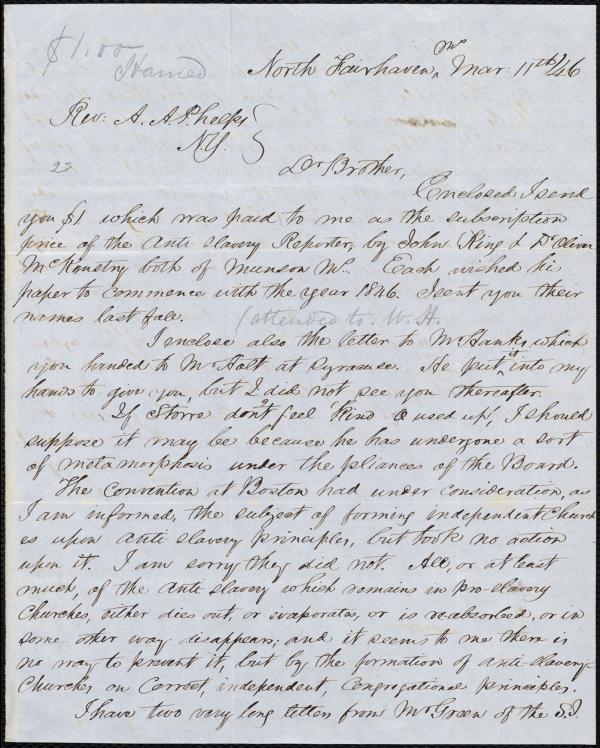 $1.00
Named
North Fairhaven, Ms Mar: 11th/46
Rev: A. A. Phelps
N.Y.
22
Dr Brother,
Enclosed I send
you $1 which was paid to me as the subscription
price of the Anti slavery Reporter, by John King & Dr Oliver
McKinstry both of Munson Ms. Each wished his
paper to commence with the year 1846. I sent you their
names last fall.
(attended to. W. H.
I enclose also the letter to Mr Hanks, which
you handed to Mr Holt at Syracuse. He put it into my
hands to give you, but I did not see you thereafter.
If Storrs don't feel "kind o used up", I should
suppose it may be because he has undergone a sort
of metamorphosis under the pliances of the Board.
The Convention at Boston had under consideration, as
I am informed, the subject of forming independent church
es upon anti slavery principles, but took no action
upon it. I am sorry they did not. All, or at least
much, of the anti slavery which remains in pro-slavery
Churches, either dies out, or evaporates, or is reabsorbed, or in
some other way disappears; and it seems to me there is
no way to prevent it, but by the formation of anti-slavery
Churches on Correct, independent, Congregational principles.
I have two very long letters from Mr Green of the S.I.